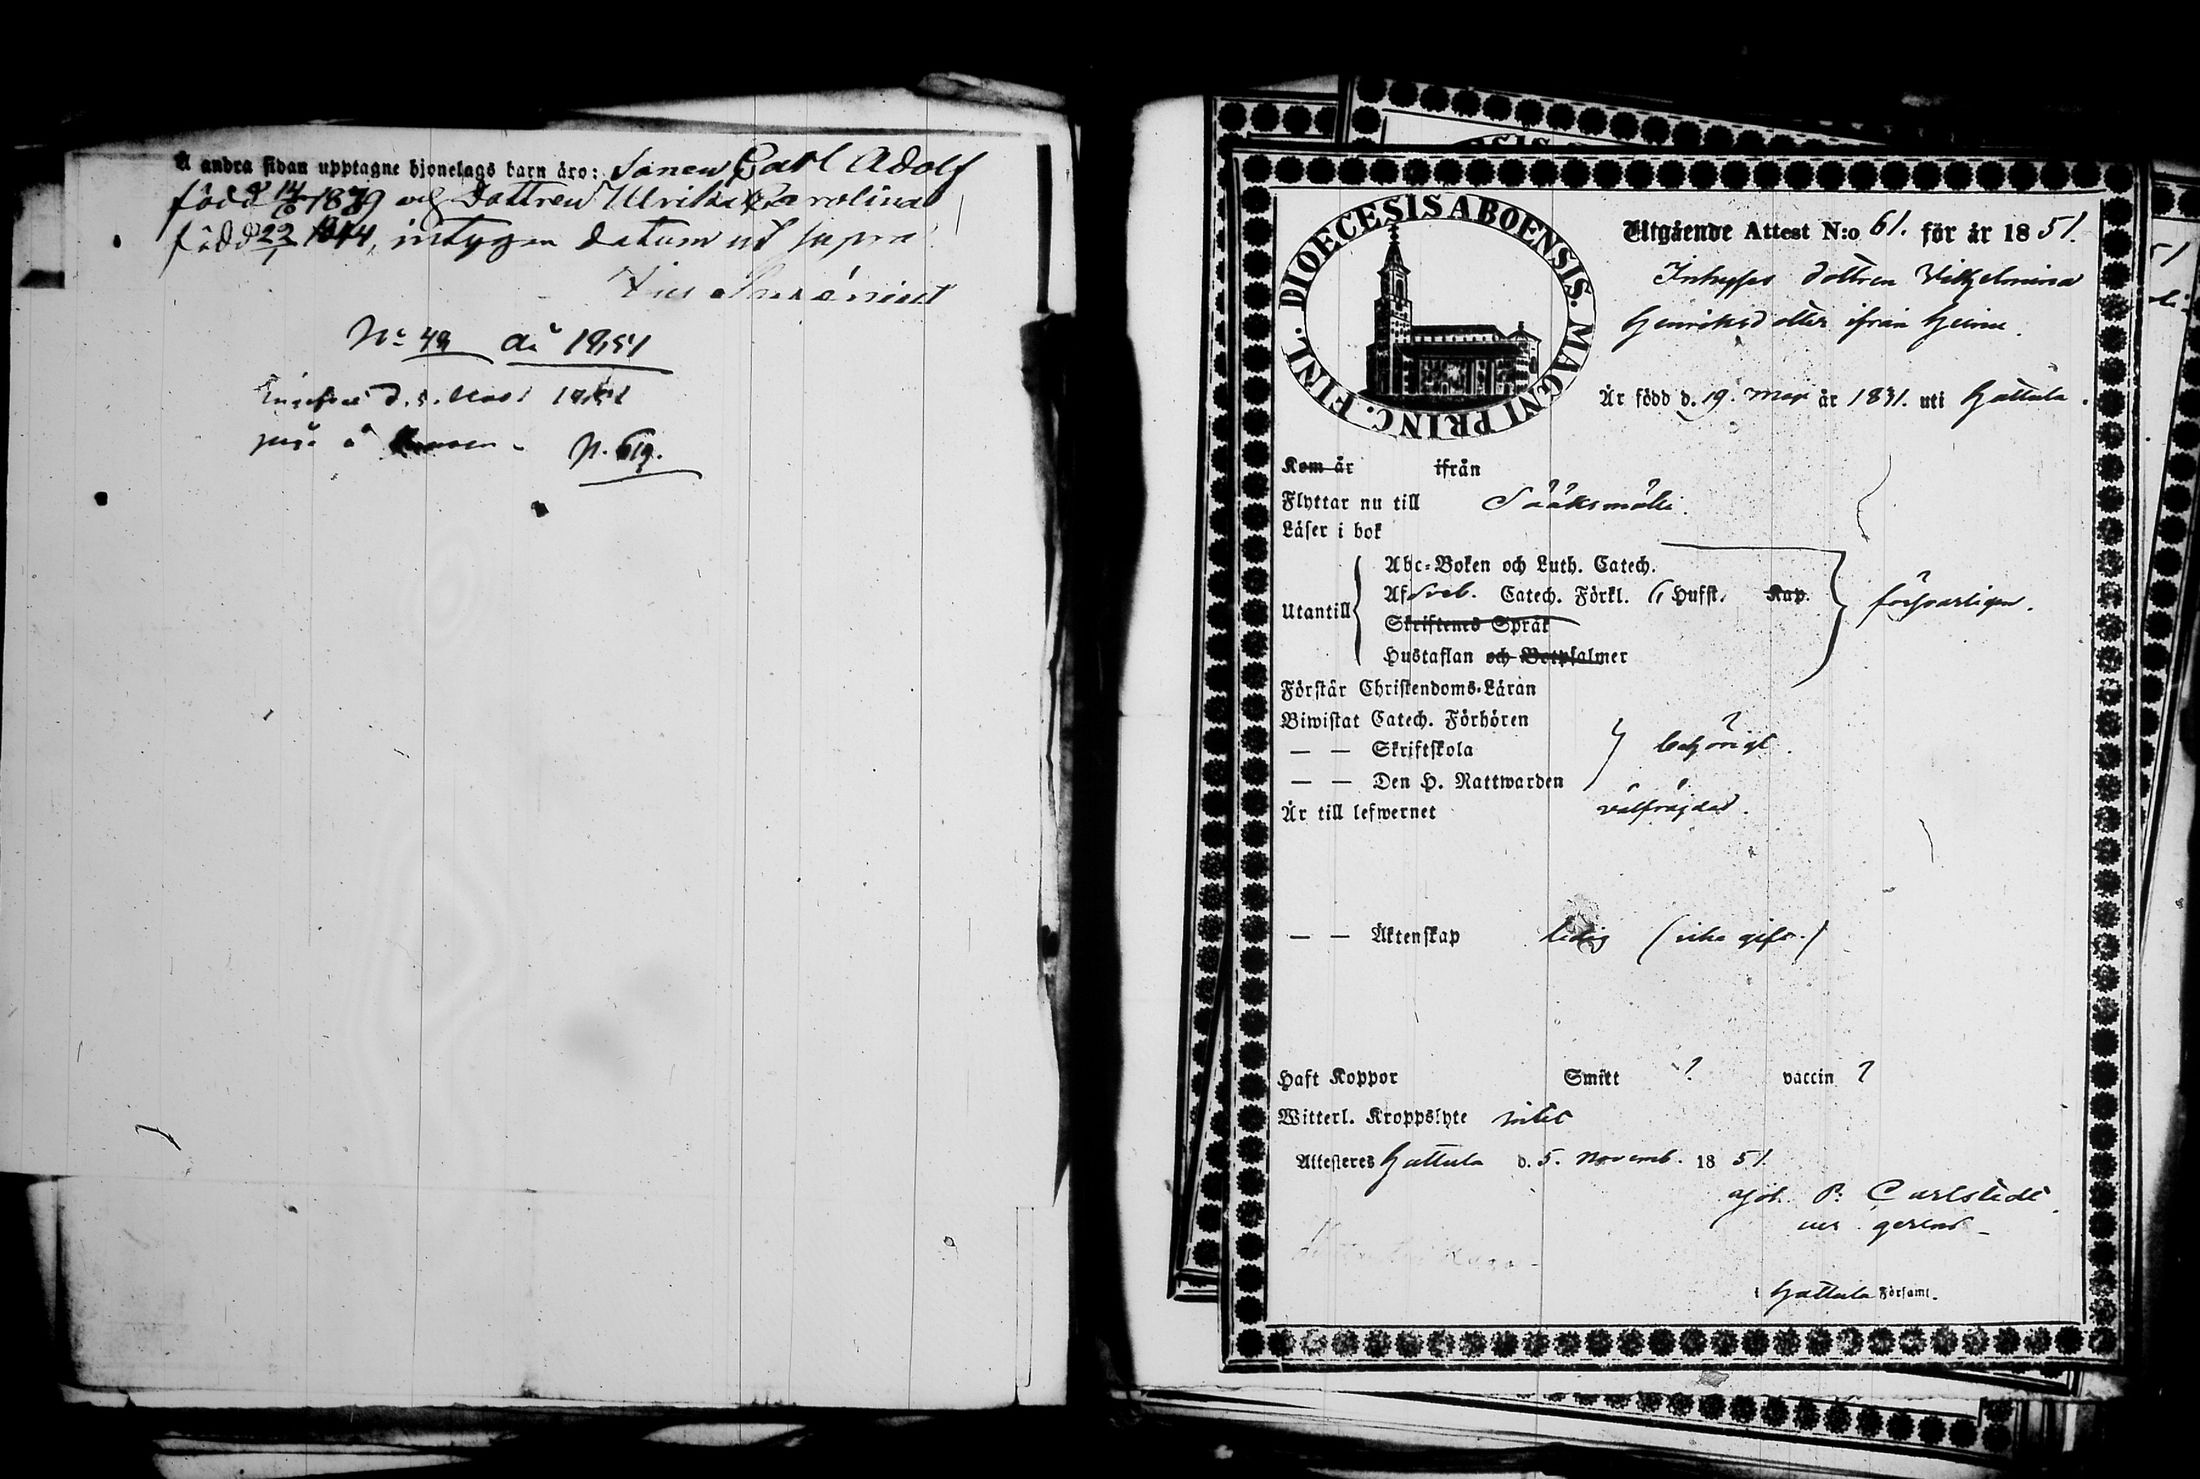 Å andra sidan upptagne hjonelags barn äro: Sonen Carl Adolf
född 14/6 1839 och Dottren Ulrika Karolina
född 22/1 1844, intygar datum ut supra
No 49 du 1851
d. 5. Nov. 1851
N. 619.
DIOECESIS ABOENSIS. MAGNI PRINC. FINL.
Utgående Attest N:o 61. för år 1851.
Inhyses dottren Vilhelmina
Henriksdotter ifrån
Är född d. 19. Maji år 1831. uti Hattula.
Kom år ifrån
Flyttar nu till Sääksmäki.
Läser i bok
Abc-Boken och Luth. Catech.
Af Sveb. Catech. Förkl. 6 Hufst. Kap.
Utantill försvarligen.
Skriftenes Språk
Hustaflan och Botpsalmer
Förstår Christendoms-Läran
Biwistat Catech. Förhören
— — Skriftskola behörigt.
— — Den H. Nattwarden
Är till lefwernet välfräjdad.
— — Äktenskap ledig (icke gift.)
Haft Koppor Smitt ? vaccin ?
Witterl. Kroppslyte intet
Attesteres Hattula d. 5. Novemb. 1851.
Joh. P. Carlstedt
vices gerens
i Hattula Församl.